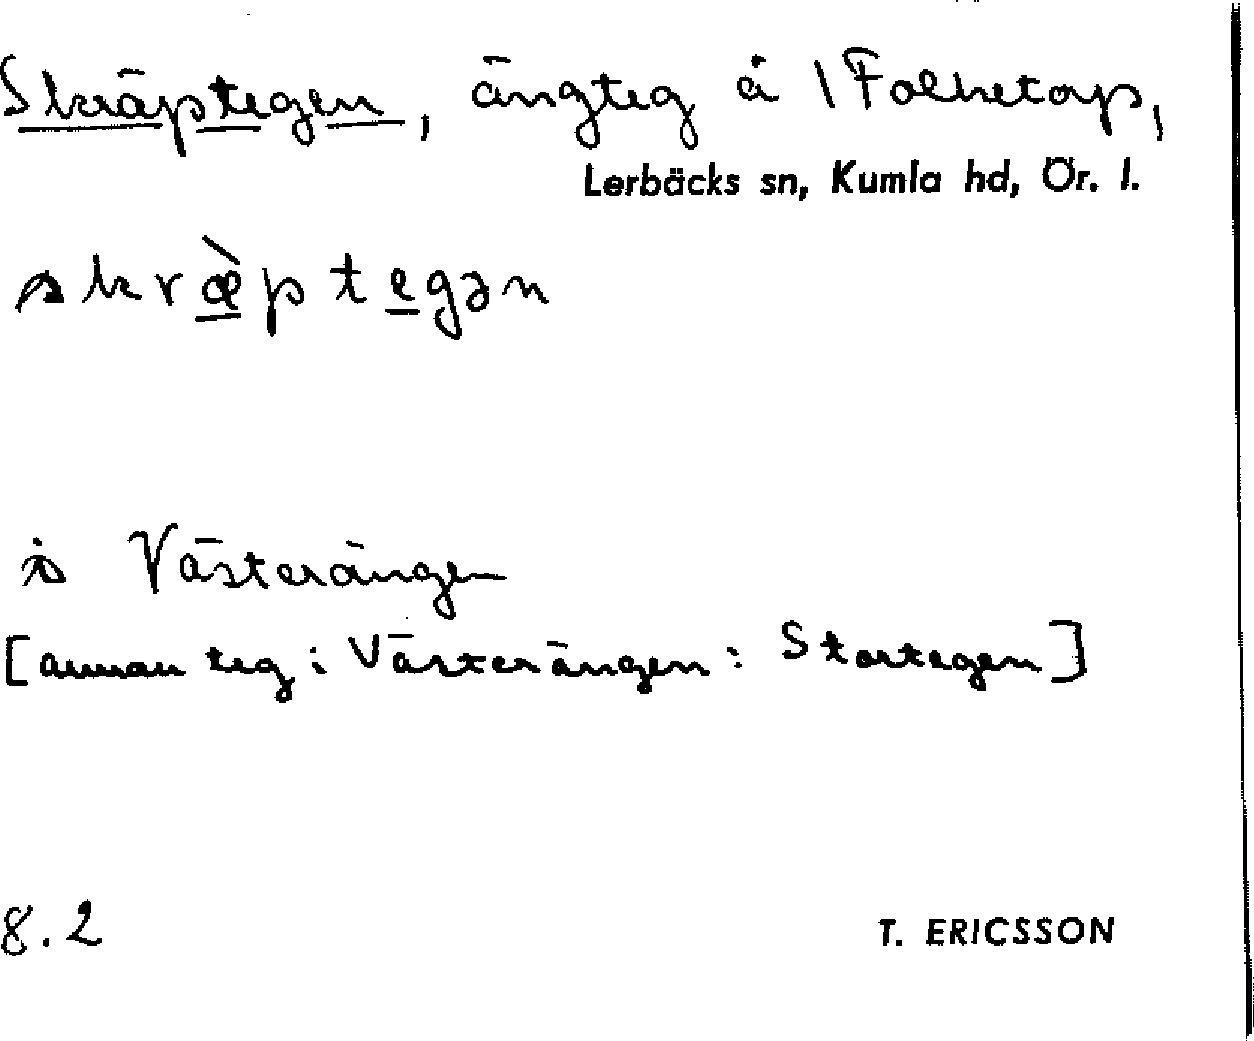 Skräptegen, ängteg å \Folketorp,
Lerbäcks sn, Kumla hd, Ör. l.
skræ̀ptegən
i Västerängen
[annan teg i Västerängen: Stortegen]
8.2
T. ERICSSON